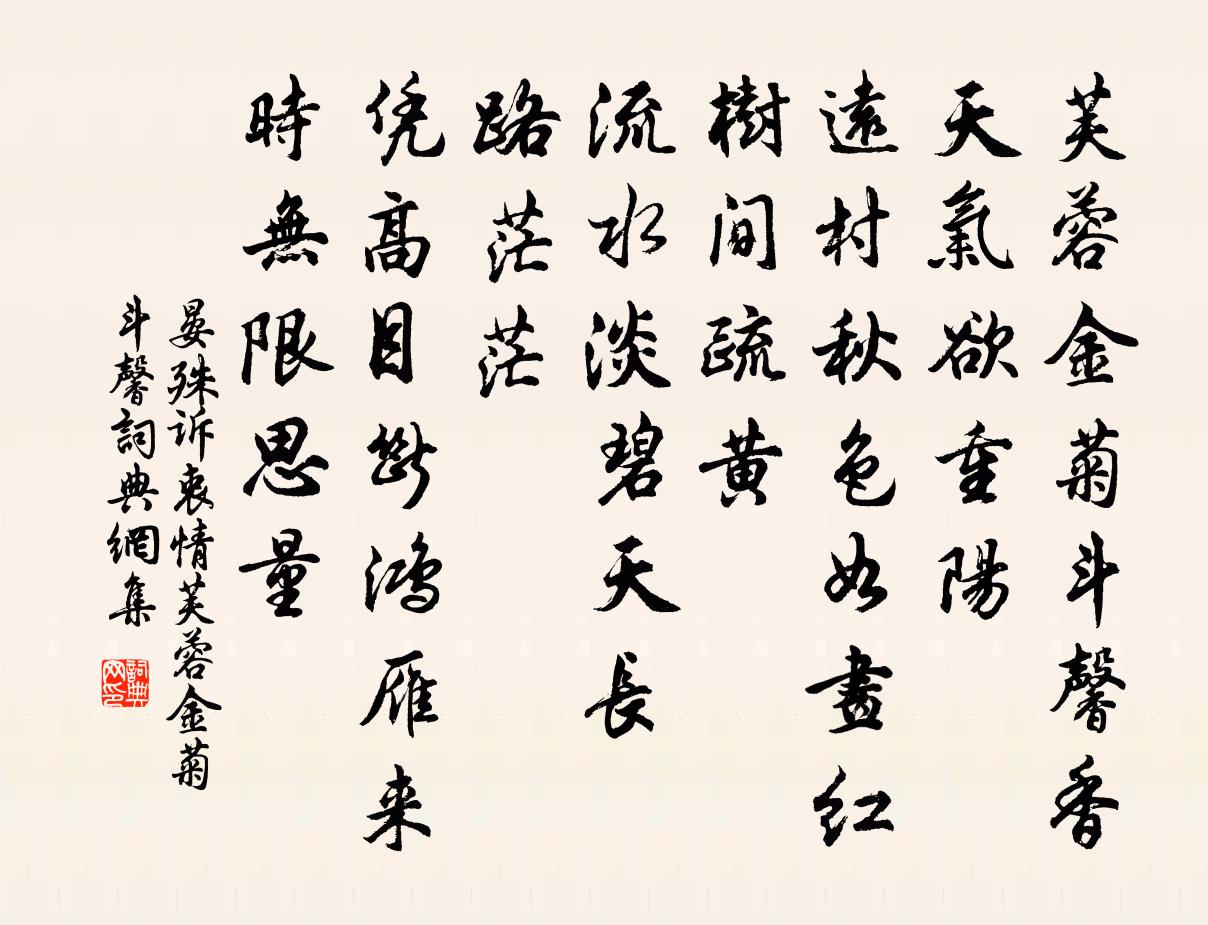 芙蓉金菊斗馨香
天氣欲重陽
遠村秋色如畫紅
樹間疏黃
流水淡碧天長
路茫茫
凭高目斷鴻雁来
時無限思量
晏殊訴衷情芙蓉金菊
斗馨詞典網集
詞典网印